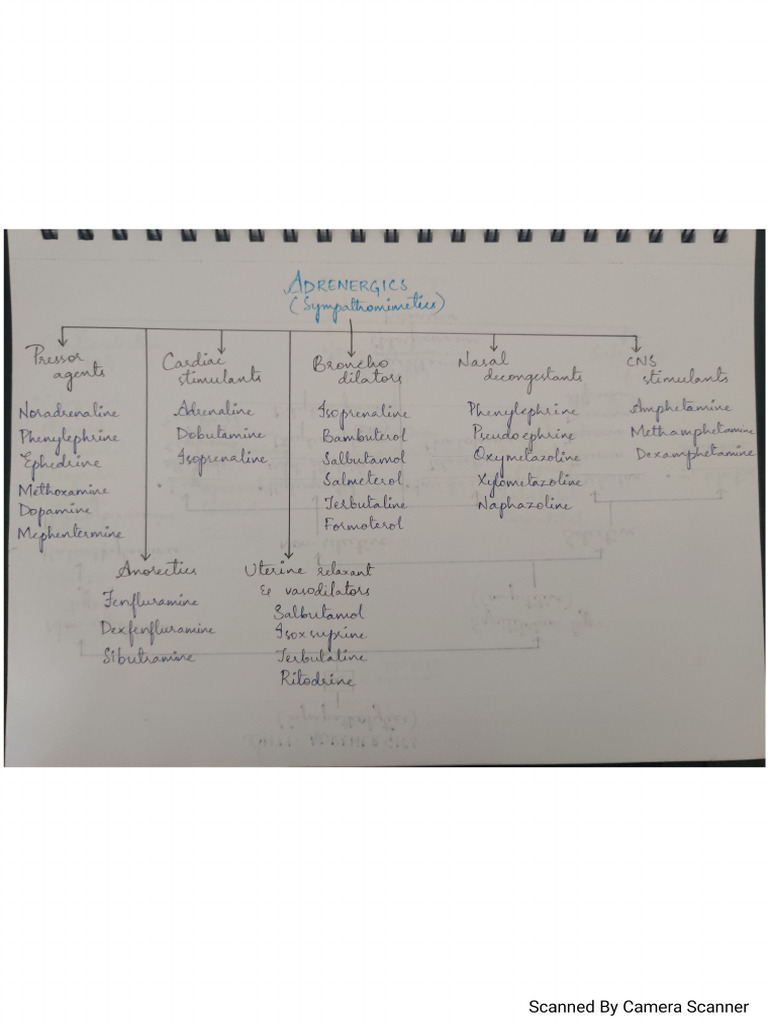 ADRENERGICS
(Sympathomimetics)
Pressor
agents
Noradrenaline
Phenylephrine
Ephedrine
Methoxamine
Dopamine
Mephentermine
Anorectics
Fenfluramine
Dexfenfluramine
Sibutramine
Cardiac
stimulants
Adrenaline
Dobutamine
Isoprenaline
Uterine relaxant
& vasodilators
Salbutamol
Isoxsuprine
Terbutaline
Ritodrine
Broncho
dilators
Isoprenaline
Bambuterol
Salbutamol
Salmeterol
Terbutaline
Formoterol
Nasal
decongestants
Phenylephrine
Pseudoephrine
Oxymetazoline
Xylometazoline
Naphazoline
CNS
stimulants
Amphetamine
Methamphetamine
Dexamphetamine
Scanned By Camera Scanner